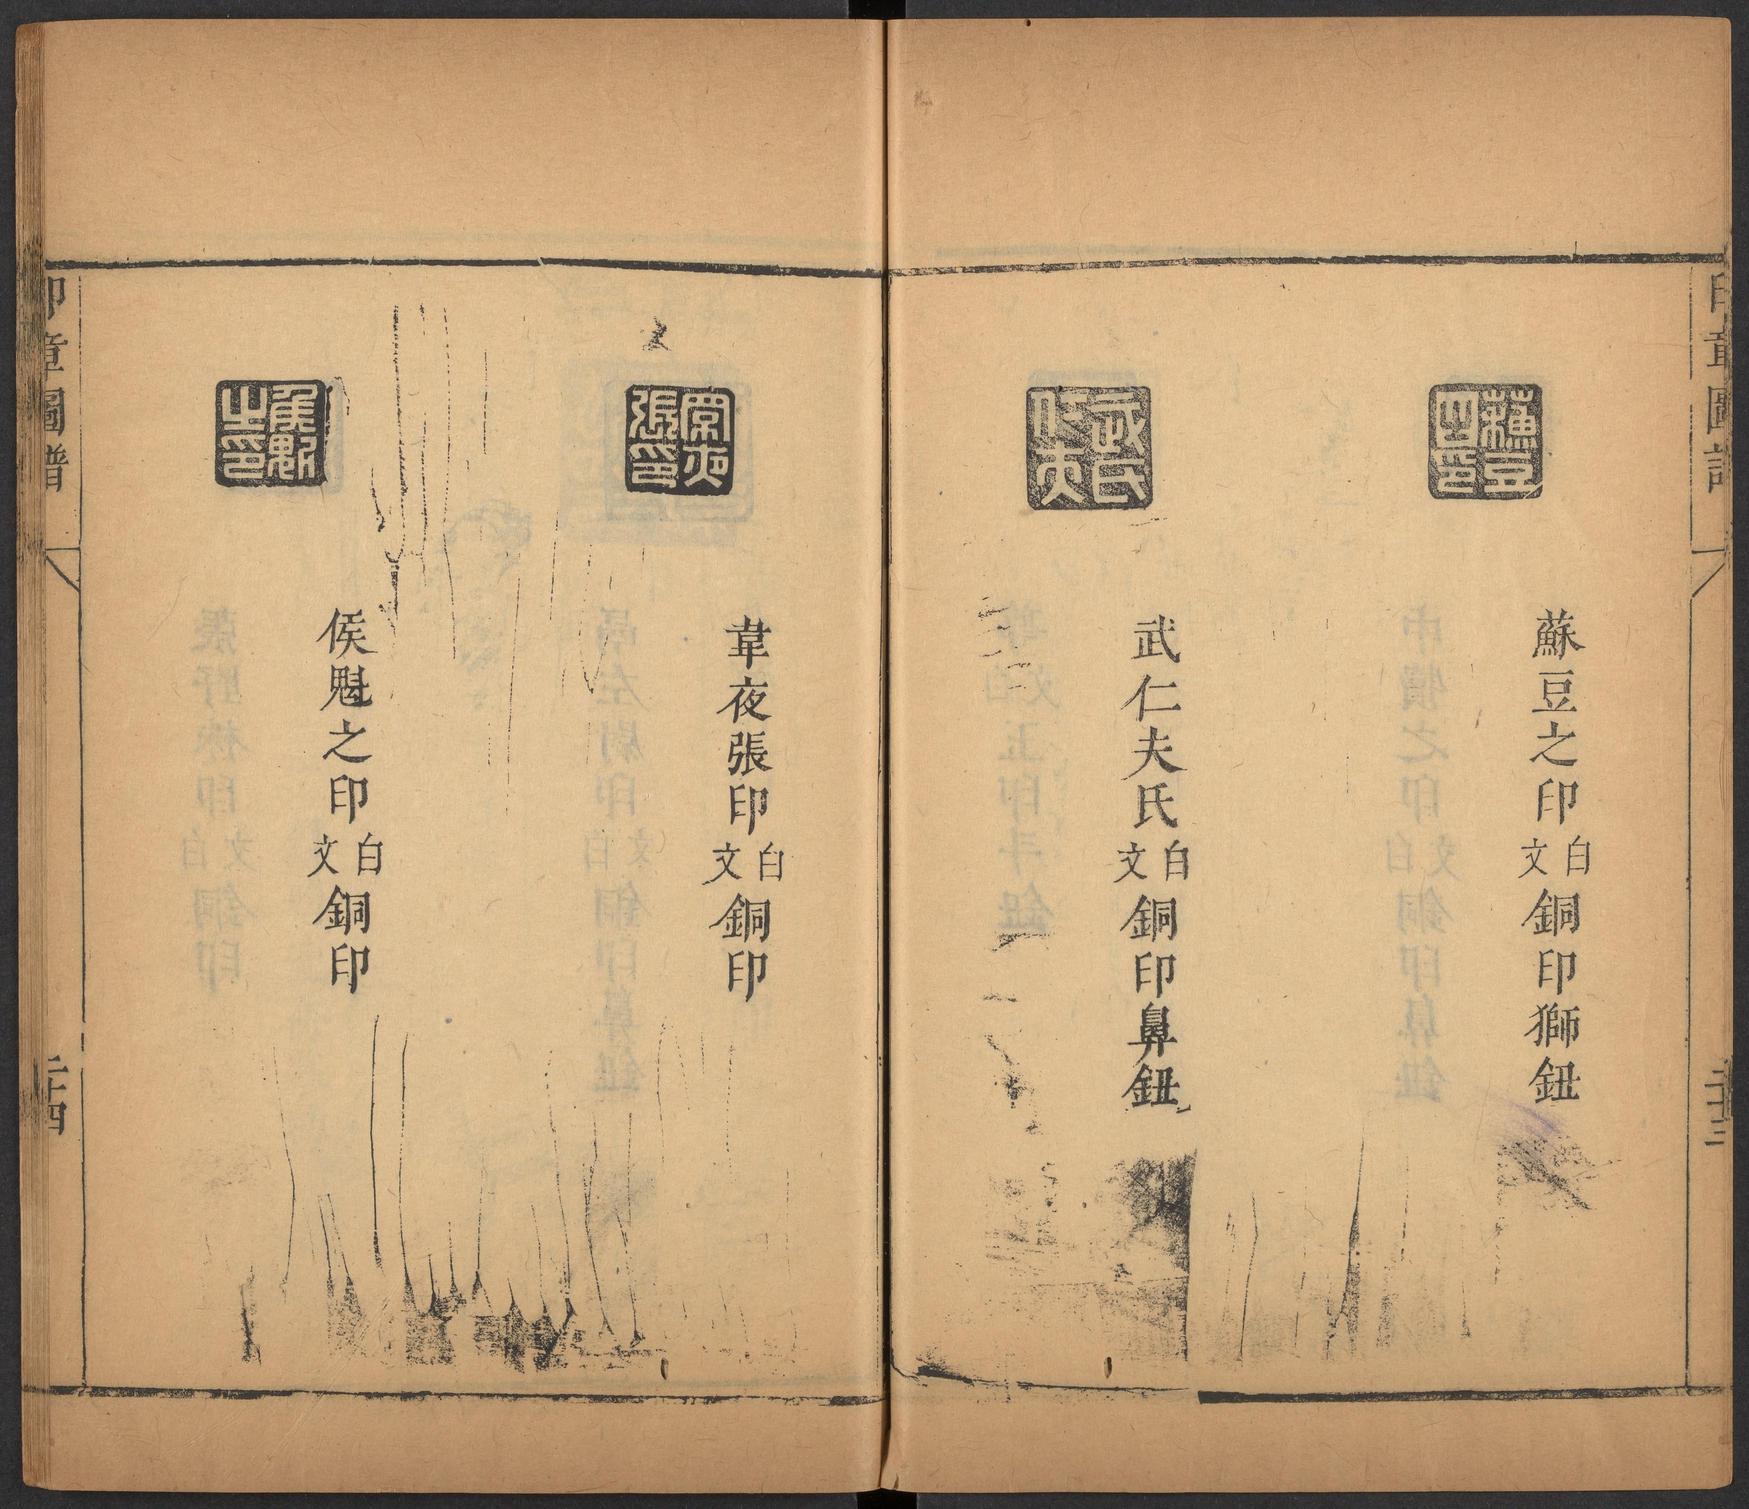 印章圖譜
二十三
蘇豆之印
蘇豆之印白文銅印獅鈕
武仁夫氏白文銅印鼻鈕
韋夜張印白文銅印
侯魁之印
侯魁之印白文銅印
印章圖譜
二十四